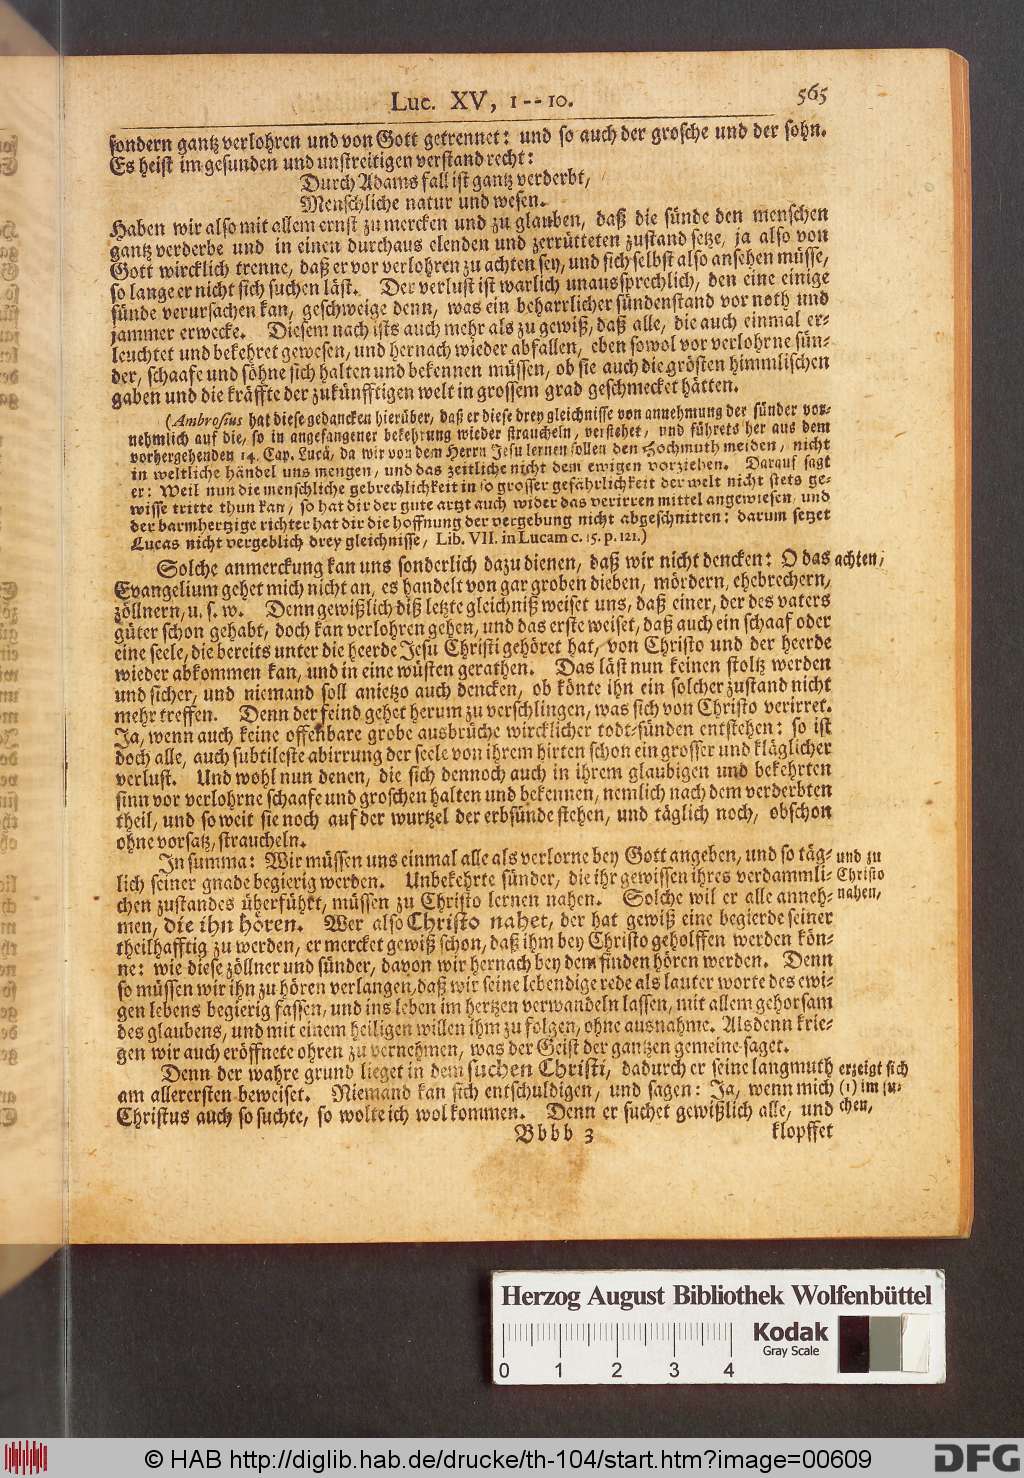 Luc. XV, 1--10. 565
sondern gantz verlohren und von Gott getrennet: und so auch der grosche und der sohn.
Es heist im gesunden und unstreitigen verstand recht:
Durch Adams fall ist gantz verderbt,
Menschliche natur und wesen.
Haben wir also mit allem ernst zu mercken und zu glauben, daß die sünde den menschen
gantz verderbe und in einen durchaus elenden und zerrütteten zustand setze, ja also von
Gott wircklich trenne, daß er vor verlohren zu achten sey, und sich selbst also ansehen müsse,
so lange er nicht sich suchen läst. Der verlust ist warlich unaussprechlich, den eine einige
sünde verursachen kan, geschweige denn, was ein beharrlicher sündenstand vor noth und
jammer erwecke. Diesem nach ists auch mehr als zu gewiß, daß alle, die auch einmal er-
leuchtet und bekehret gewesen, und hernach wieder abfallen, eben sowol vor verlohrne sün-
der, schaafe und söhne sich halten und bekennen müssen, ob sie auch die grösten himmlischen
gaben und die kräffte der zukünfftigen welt in grossem grad geschmecket hätten.
(Ambrosius hat diese gedancken hierüber, daß er diese drey gleichnisse von annehmung der sünder vor-
nehmlich auf die, so in angefangener bekehrung wieder straucheln, verstehet, und führets her aus dem
vorhergehenden 14. Cap. Lucä, da wir von dem Herrn Jesu lernen sollen den hochmuth meiden, nicht
in weltliche händel uns mengen, und das zeitliche nicht dem ewigen vorziehen. Darauf sagt
er: Weil nun die menschliche gebrechlichkeit in so grosser gefährlichkeit der welt nicht stets ge-
wisse tritte thun kan, so hat dir der gute artzt auch wider das verirren mittel angewiesen, und
der barmhertzige richter hat dir die hoffnung der vergebung nicht abgeschnitten: darum setzet
Lucas nicht vergeblich drey gleichnisse, Lib. VII. in Lucam c. 15. p. 121.)
Solche anmerckung kan uns sonderlich dazu dienen, daß wir nicht dencken: O das achten,
Evangelium gehet mich nicht an, es handelt von gar groben dieben, mördern, ehebrechern,
zöllnern, u. s. w. Denn gewißlich diß letzte gleichniß weiset uns, daß einer, der des vaters
güter schon gehabt, doch kan verlohren gehen, und das erste weiset, daß auch ein schaaf oder
eine seele, die bereits unter die heerde Jesu Christi gehöret hat, von Christo und der heerde
wieder abkommen kan, und in eine wüsten gerathen. Das läst nun keinen stoltz werden
und sicher, und niemand soll anietzo auch dencken, ob könte ihn ein solcher zustand nicht
mehr treffen. Denn der feind gehet herum zu verschlingen, was sich von Christo verirret.
Ja, wenn auch keine offenbare grobe ausbrüche wircklicher todt-sünden entstehen: so ist
doch alle, auch subtileste abirrung der seele von ihrem hirten schon ein grosser und kläglicher
verlust. Und wohl nun denen, die sich dennoch auch in ihrem glaubigen und bekehrten
sinn vor verlohrne schaafe und groschen halten und bekennen, nemlich nach dem verderbten
theil, und so weit sie noch auf der wurtzel der erbsünde stehen, und täglich noch, obschon
ohne vorsatz, straucheln.
In summa: Wir müssen uns einmal alle als verlorne bey Gott angeben, und so täg- und zu
lich seiner gnade begierig werden. Unbekehrte sünder, die ihr gewissen ihres verdammli- Christo
chen zustandes überführt, müssen zu Christo lernen nahen. Solche wil er alle anneh- nahen,
men, die ihn hören. Wer also Christo nahet, der hat gewiß eine begierde seiner
theilhafftig zu werden, er mercket gewiß schon, daß ihm bey Christo geholffen werden kön-
ne: wie diese zöllner und sünder, davon wir hernach bey dem finden hören werden. Denn
so müssen wir ihn zu hören verlangen, daß wir seine lebendige rede als lauter worte des ewi-
gen lebens begierig fassen, und ins leben im hertzen verwandeln lassen, mit allem gehorsam
des glaubens, und mit einem heiligen willen ihm zu folgen, ohne ausnahme. Alsdenn krie-
gen wir auch eröffnete ohren zu vernehmen, was der Geist der gantzen gemeine saget.
Denn der wahre grund lieget in dem suchen Christi, dadurch er seine langmuth erzeigt sich
am allerersten beweiset. Niemand kan sich entschuldigen, und sagen: Ja, wenn mich (1) im su-
Christus auch so suchte, so wolte ich wol kommen. Denn er suchet gewißlich alle, und chen,
Bbbb 3 klopffet
Herzog August Bibliothek Wolfenbüttel
Kodak
Gray Scale
0 1 2 3 4
© HAB http://diglib.hab.de/drucke/th-104/start.htm?image=00609
DFG